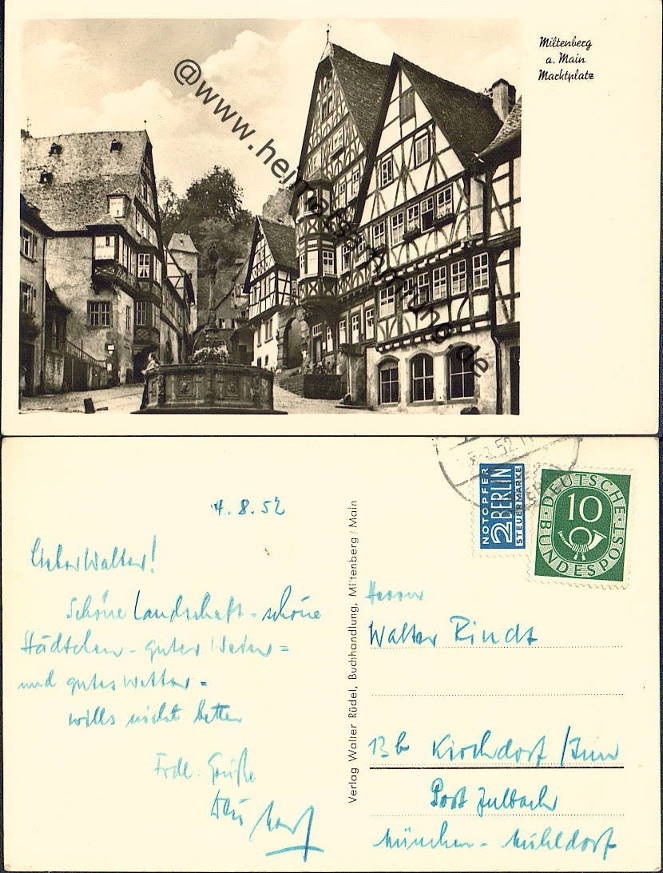 Miltenberg
a. Main
Marktplatz
@www.heimatsammlung.de
4.8.52
Lieber Walter!
Schöne Landschaft - schöne
Städtchen - guter Wein =
und gutes Wetter =
wills nicht better
Frdl. Grüße
Verlag Walter Rüdel, Buchhandlung, Miltenberg / Main
NOTOPFER
2 BERLIN
STEUERMARKE
DEUTSCHE
10
BUNDESPOST
Herrn
Walter Rindt
13b Kirchdorf / Inn
Post Julbach
München - Mühldorf